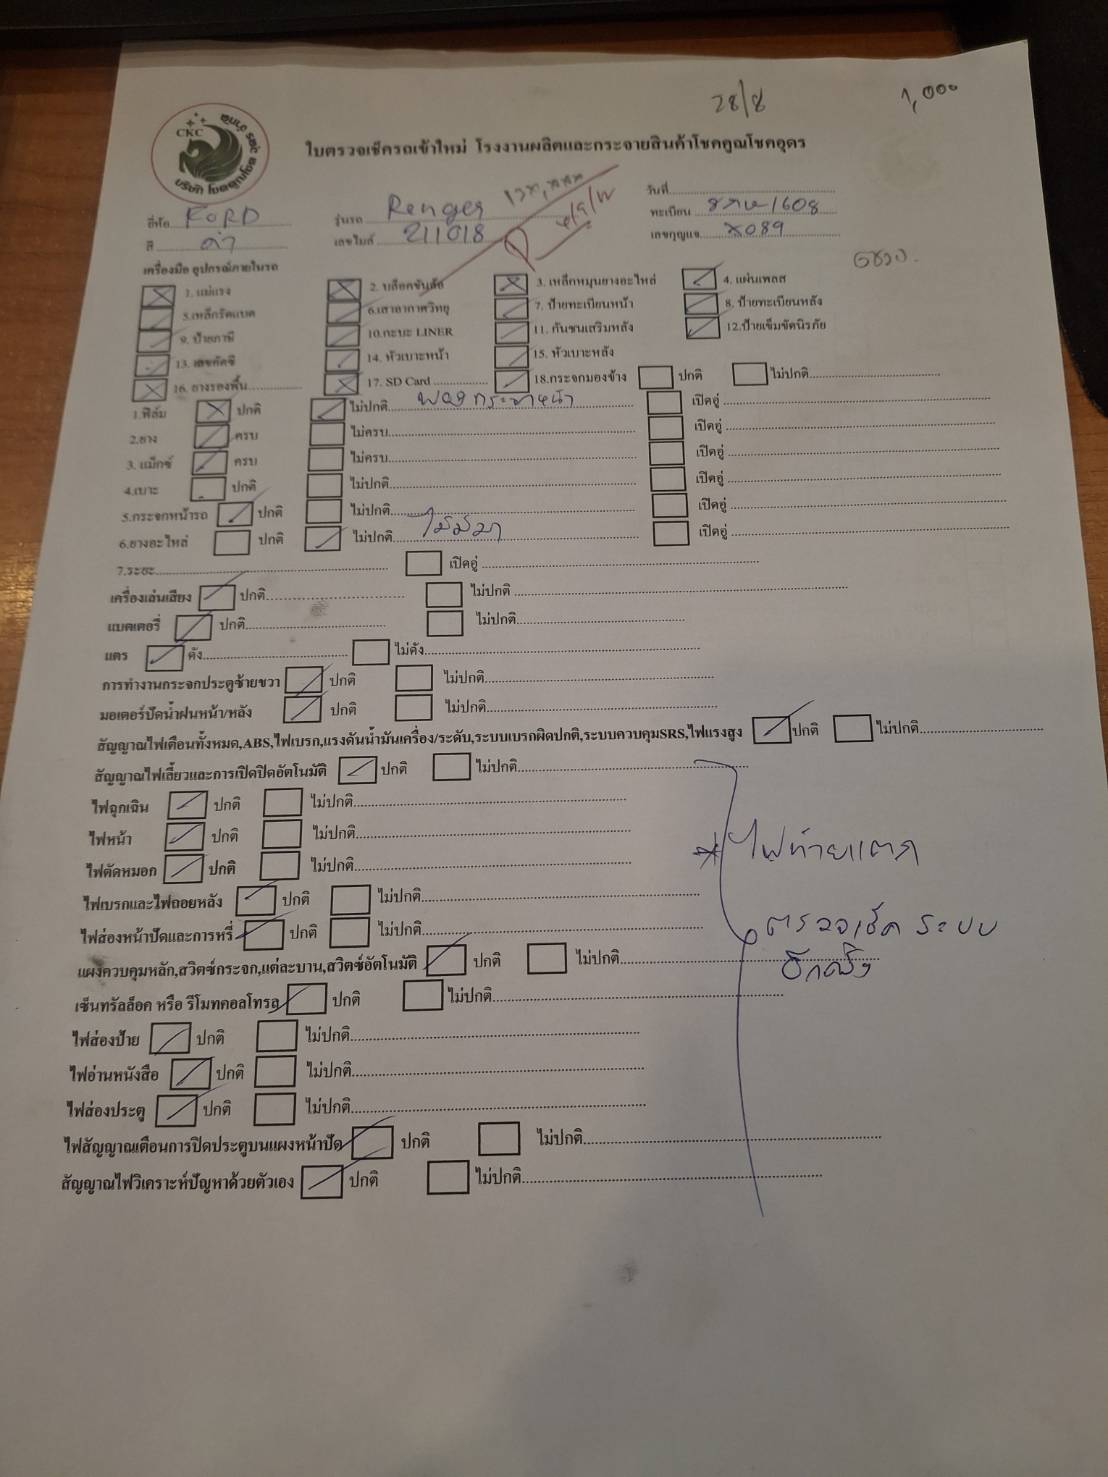 28/8 1,000
CKC
ใบตรวจเช็ครถเข้าใหม่ โรงงานผลิตและกระจายสินค้าโชคคูณโชคอุดร
วันที่
ยี่ห้อ FORD รุ่นรถ Renger ทะเบียน 1608
สี ดำ เลขไมล์ 211018 เลขกุญแจ X089
เครื่องมือ อุปกรณ์ภายในรถ
1. แม่แรง 2. บล็อกขันล้อ 3. เหล็กหมุนยางอะไหล่ 4. แผ่นเพลส
5.เหล็กรัดแบต 6.เสาอากาศวิทยุ 7. ป้ายทะเบียนหน้า 8. ป้ายทะเบียนหลัง
9. ป้ายภาษี 10.กะบะ LINER 11. กันชนเสริมหลัง 12.ป้ายเข็มขัดนิรภัย
13. เลขคัตซี 14. หัวเบาะหน้า 15. หัวเบาะหลัง
16. ยางรองพื้น 17. SD Card 18.กระจกมองข้าง ปกติ ไม่ปกติ
1.ฟิล์ม ปกติ ไม่ปกติ พอง กระจกหน้า เปิดอู่
2.ยาง ครบ ไม่ครบ เปิดอู่
3. แม็กซ์ ครบ ไม่ครบ เปิดอู่
4.เบาะ ปกติ ไม่ปกติ เปิดอู่
5.กระจกหน้ารถ ปกติ ไม่ปกติ เปิดอู่
6.ยางอะไหล่ ปกติ ไม่ปกติ ไม่มีมา เปิดอู่
7.ระยะ เปิดอู่
เครื่องเล่นเสียง ปกติ ไม่ปกติ
แบตเตอรี่ ปกติ ไม่ปกติ
แตร ดัง ไม่ดัง
การทำงานกระจกประตูซ้ายขวา ปกติ ไม่ปกติ
มอเตอร์ปัดน้ำฝนหน้า/หลัง ปกติ ไม่ปกติ
สัญญาณไฟเตือนทั้งหมด,ABS,ไฟเบรก,แรงดันน้ำมันเครื่อง/ระดับ,ระบบเบรกผิดปกติ,ระบบควบคุมSRS,ไฟแรงสูง ปกติ ไม่ปกติ
สัญญาณไฟเลี้ยวและการเปิดปิดอัตโนมัติ ปกติ ไม่ปกติ
ไฟฉุกเฉิน ปกติ ไม่ปกติ
ไฟหน้า ปกติ ไม่ปกติ
* ไฟท้ายแตก
ไฟตัดหมอก ปกติ ไม่ปกติ
ไฟเบรกและไฟถอยหลัง ปกติ ไม่ปกติ
ไฟส่องหน้าปัดและการหรี่ ปกติ ไม่ปกติ
ตรวจเช็ค ระบบ
อีกครั้ง
แผงควบคุมหลัก,สวิตช์กระจก,แต่ละบาน,สวิตช์อัตโนมัติ ปกติ ไม่ปกติ
เซ็นทรัลล็อค หรือ รีโมทคอลโทรล ปกติ ไม่ปกติ
ไฟส่องป้าย ปกติ ไม่ปกติ
ไฟอ่านหนังสือ ปกติ ไม่ปกติ
ไฟส่องประตู ปกติ ไม่ปกติ
ไฟสัญญาณเตือนการปิดประตูบนแผงหน้าปัด ปกติ ไม่ปกติ
สัญญาณไฟวิเคราะห์ปัญหาด้วยตัวเอง ปกติ ไม่ปกติ